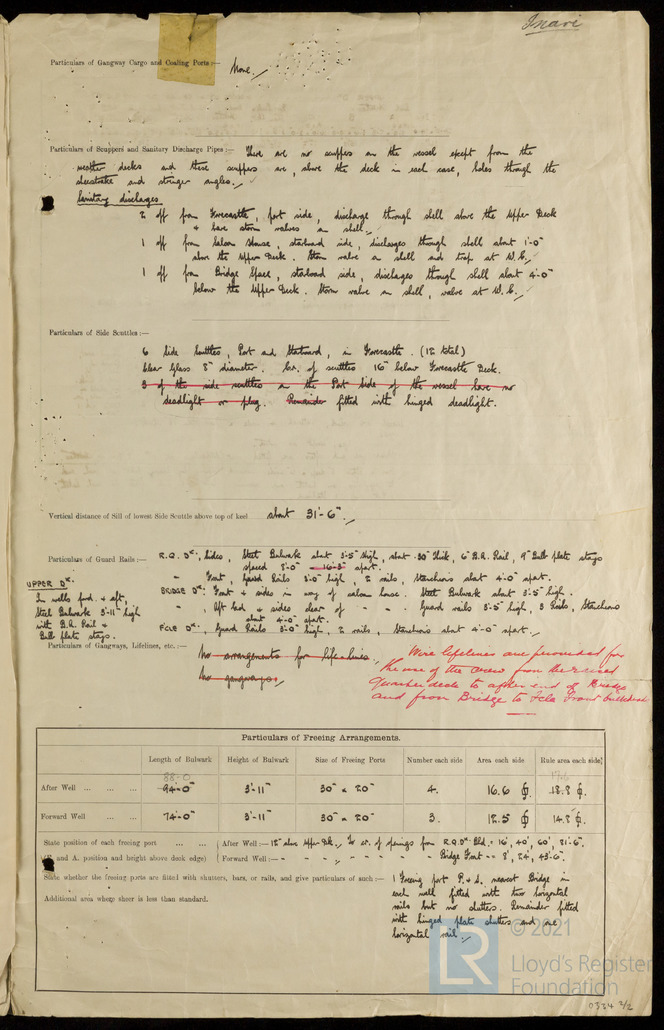 Inari
Particulars of Gangway Cargo and Coaling Ports :— None.
Particulars of Scuppers and Sanitary Discharge Pipes :— There are no scuppers on the vessel except from the
weather decks and these scuppers are, above the deck in each case, holes through the
sheerstrake and stringer angles.
Sanitary discharges
2 off from Forecastle, port side, discharge through shell above the Upper Deck
+ have storm valves on shell.
1 off from Saloon House, starboard side, discharges through shell about 1'-0"
above the Upper Deck. Storm valve on shell and trap at W.C.
1 off from Bridge Space, starboard side, discharges through shell about 4'-0"
below the Upper Deck. Storm valve on shell, valve at W.C.
Particulars of Side Scuttles :—
6 Side Scuttles, Port and Starboard, in Forecastle. (12 total)
Clear Glass 8" diameter. Crs. of scuttles 16" below Forecastle Deck.
3 of the side scuttles on the Port Side of the vessel have no
deadlight or plug. Remainder fitted with hinged deadlight.
Vertical distance of Sill of lowest Side Scuttle above top of keel about 31'-6"
Particulars of Guard Rails :— R.Q. Dk., Sides, Steel Bulwark about 3'-5" high, about .30" thick, 6" B.A. Rail, 9" Bulb plate stays
spaced 8'-0" - 16'-3" apart.
" Front, Guard Rails 3'-0" high, 2 rails, Stanchions about 4'-0" apart.
UPPER Dk.
In wells fwd. & aft,
Steel Bulwark 3'-11" high
with B.A. Rail &
Bulb plate stays.
BRIDGE Dk: Front & sides in way of saloon house. Steel Bulwark about 3'-5" high.
" Aft End & sides clear of " " . Guard rails 3'-5" high, 3 Rails, Stanchions
about 4'-0" apart.
F'CLE Dk., Guard Rails 3'-0" high, 2 rails, Stanchions about 4'-0" apart.
Particulars of Gangways, Lifelines, etc. :— No arrangements for life-lines.
No gangways.
Wire lifelines are provided for
the use of the crew from the raised
quarter deck to after end of Bridge
and from Bridge to Fcle Front bulkhead
Particulars of Freeing Arrangements.
Length of Bulwark Height of Bulwark Size of Freeing Ports Number each side Area each side Rule area each side
88-0
After Well ... ... ... 94'-0" 3'-11" 30" x 20" 4. 16.6 18.8
Forward Well 74'-0" 3'-11" 30" x 20" 3. 12.5 14.8
State position of each freeing port ... ... After Well :— 12" above Upper Dk., To cr. of openings from R.Q.Dk. Bld. = 16', 40', 60', 81'-6".
(F. and A. position and height above deck edge) Forward Well :— Bridge Front = 8', 24', 43'-6".
State whether the freeing ports are fitted with shutters, bars, or rails, and give particulars of such :— 1 Freeing port P. & S. nearest Bridge in
each well fitted with two horizontal
rails but no shutters. Remainder fitted
with hinged plate shutters and one
horizontal rail.
Additional area where sheer is less than standard.
LR © 2021
Lloyd's Register
Foundation
0334 2/2